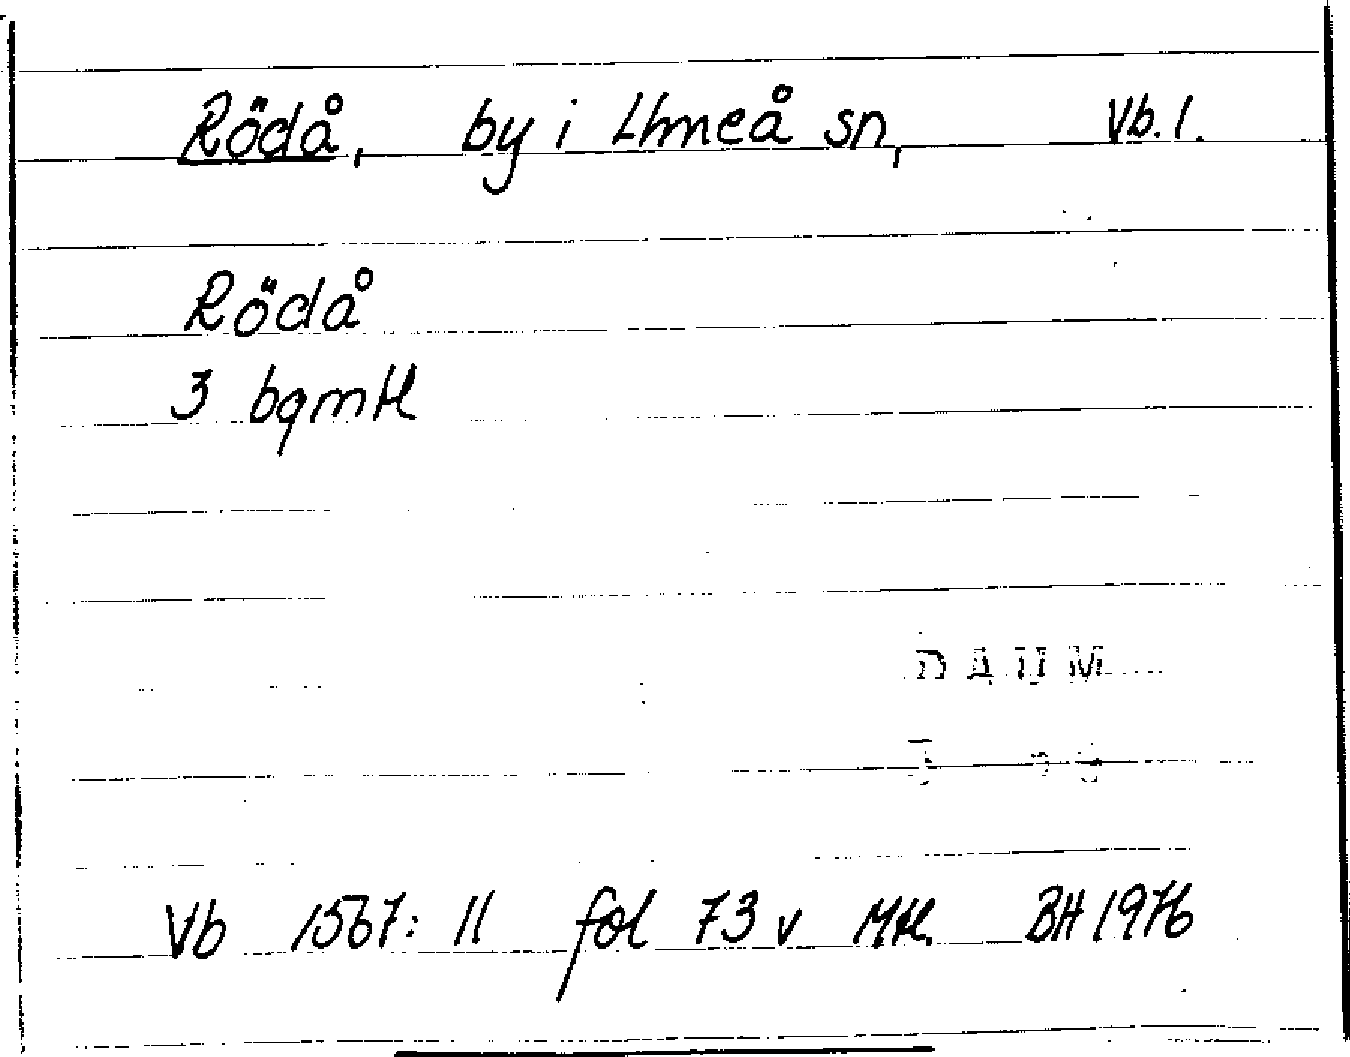 Rödå, by i Umeå sn, Vb. l.
Rödå
3 bgmtl
DAUM
Vb 1567: 11 fol 73 v Mtl. BH 1976